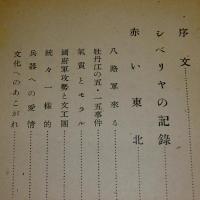 序文
シベリヤの記録
赤い東北
八路軍来る
牡丹江の五・一五事件
気質とモラル
国府軍攻勢と文工団
続々一様的
兵器への愛情
文化へのあこがれ